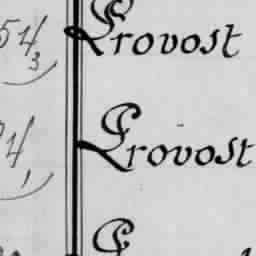 54/3 Provost
4/1 Provost